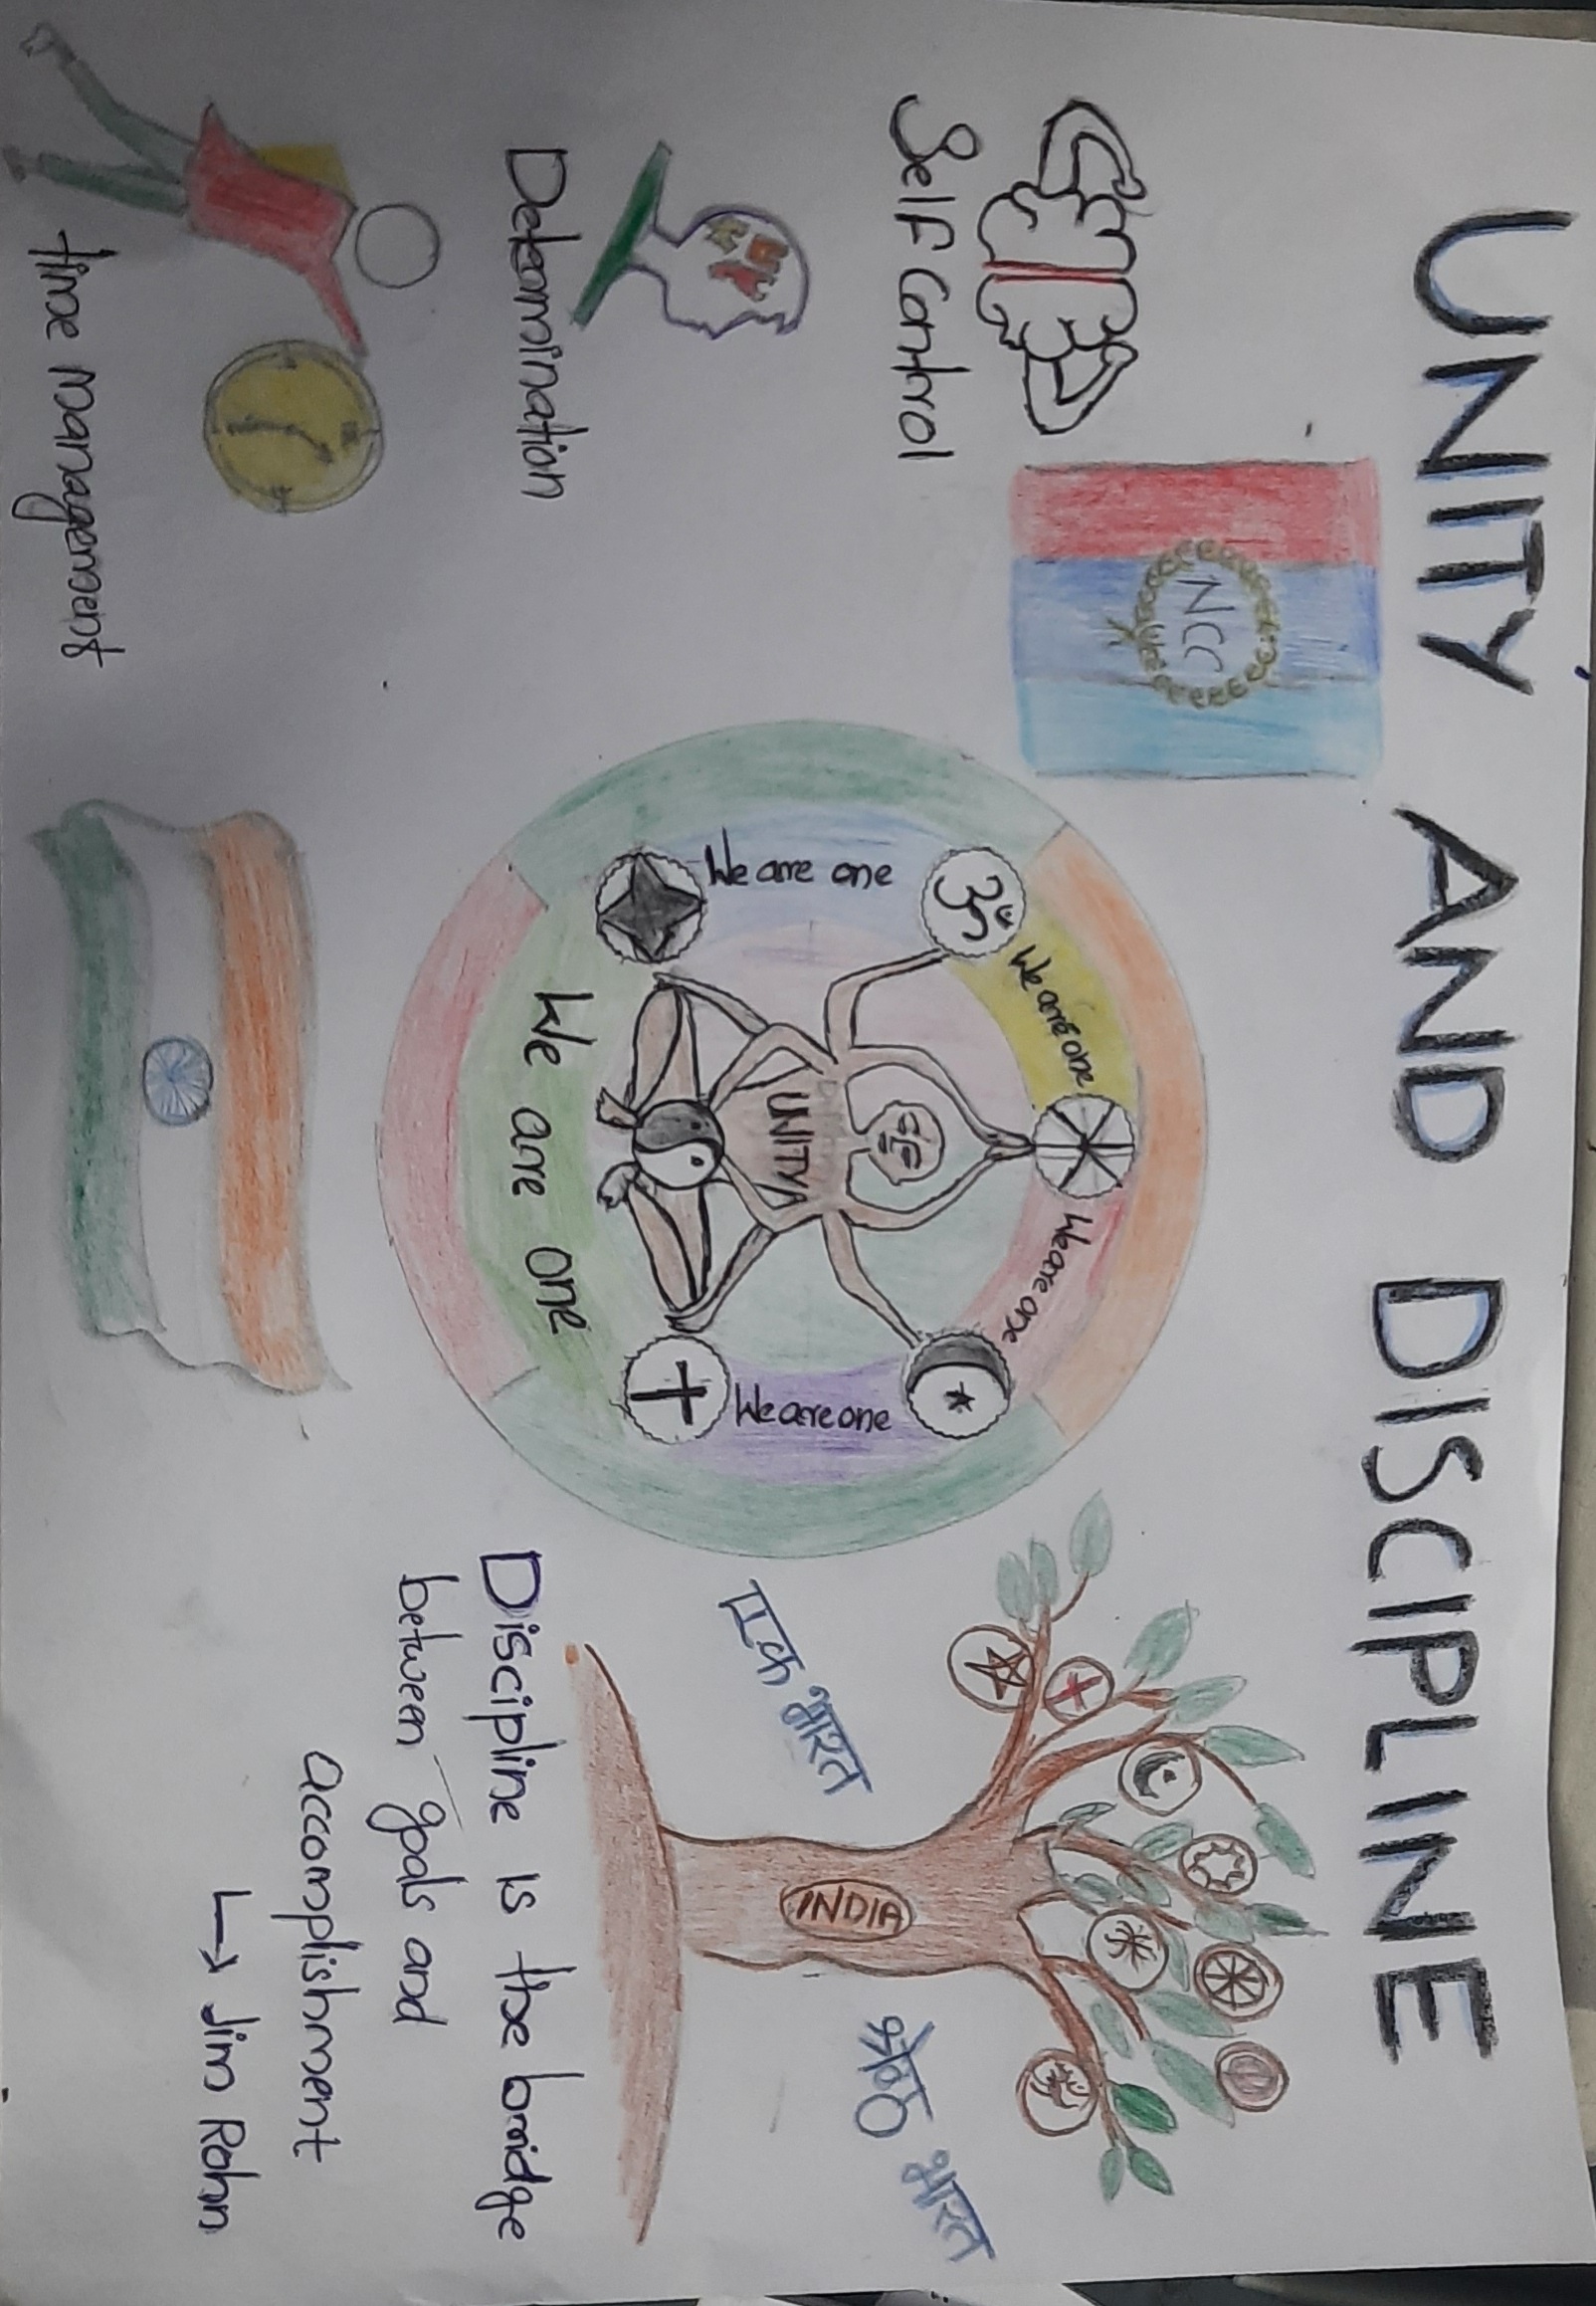 UNITY AND DISCIPLINE
Self Control
NCC
Determination
time management
We are one
We are one
We are one
We are one
We are one
UNITY
एक भारत
श्रेष्ठ भारत
INDIA
Discipline is the bridge
between goals and
accomplishment
↳ Jim Rohn